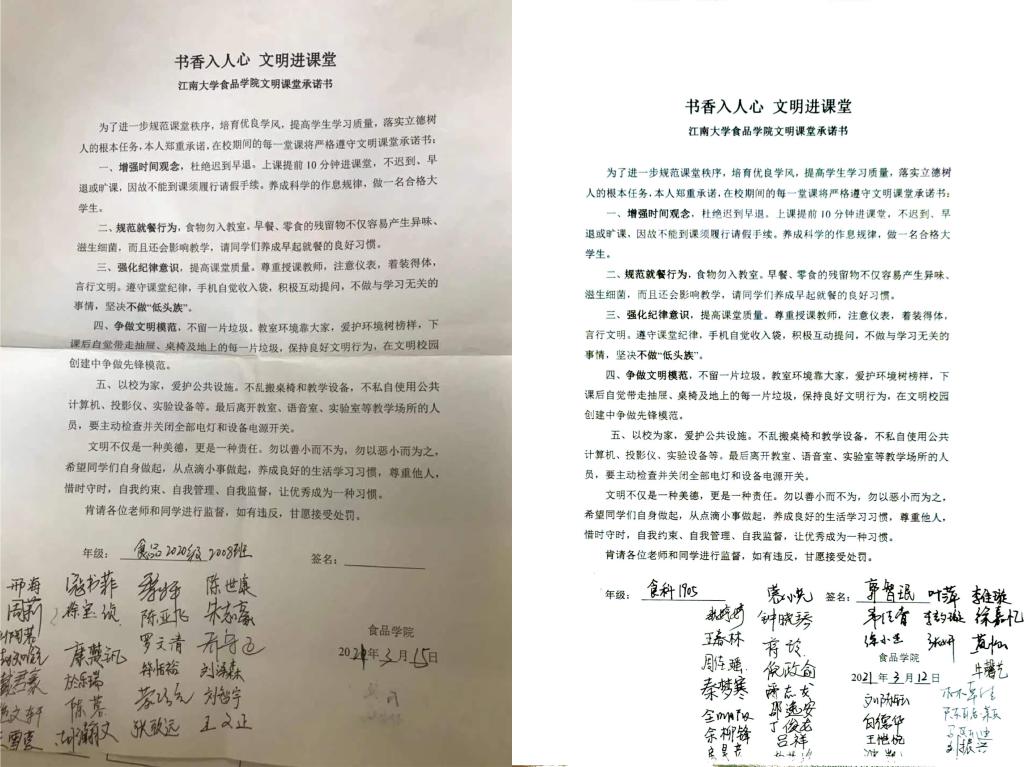 书香入人心 文明进课堂
江南大学食品学院文明课堂承诺书
为了进一步规范课堂秩序，培育优良学风，提高学生学习质量，落实立德树
人的根本任务，本人郑重承诺，在校期间的每一堂课将严格遵守文明课堂承诺书：
一、增强时间观念，杜绝迟到早退。上课提前10分钟进课堂，不迟到、早
退或旷课，因故不能到课须履行请假手续。养成科学的作息规律，做一名合格大
学生。
二、规范就餐行为，食物勿入教室。早餐、零食的残留物不仅容易产生异味、
滋生细菌，而且还会影响教学，请同学们养成早起就餐的良好习惯。
三、强化纪律意识，提高课堂质量。尊重授课教师，注意仪表，着装得体，
言行文明。遵守课堂纪律，手机自觉收入袋，积极互动提问，不做与学习无关的
事情，坚决不做“低头族”。
四、争做文明模范，不留一片垃圾。教室环境靠大家，爱护环境树榜样，下
课后自觉带走抽屉、桌椅及地上的每一片垃圾，保持良好文明行为，在文明校园
创建中争做先锋模范。
五、以校为家，爱护公共设施。不乱搬桌椅和教学设备，不私自使用公共
计算机、投影仪、实验设备等。最后离开教室、语音室、实验室等教学场所的人
员，要主动检查并关闭全部电灯和设备电源开关。
文明不仅是一种美德，更是一种责任。勿以善小而不为，勿以恶小而为之，
希望同学们自身做起，从点滴小事做起，养成良好的生活学习习惯，尊重他人，
惜时守时，自我约束、自我管理、自我监督，让优秀成为一种习惯。
肯请各位老师和同学进行监督，如有违反，甘愿接受处罚。
年级：食品2020级2008班 签名：
邢海 陈世康
周莉 陈亚飞
罗文清
刘智宇
陈慕
张歆远 王文正
食品学院
2021年3月15日
书香入人心 文明进课堂
江南大学食品学院文明课堂承诺书
为了进一步规范课堂秩序，培育优良学风，提高学生学习质量，落实立德树
人的根本任务，本人郑重承诺，在校期间的每一堂课将严格遵守文明课堂承诺书：
一、增强时间观念，杜绝迟到早退。上课提前10分钟进课堂，不迟到、早
退或旷课，因故不能到课须履行请假手续。养成科学的作息规律，做一名合格大
学生。
二、规范就餐行为，食物勿入教室。早餐、零食的残留物不仅容易产生异味、
滋生细菌，而且还会影响教学，请同学们养成早起就餐的良好习惯。
三、强化纪律意识，提高课堂质量。尊重授课教师，注意仪表，着装得体，
言行文明。遵守课堂纪律，手机自觉收入袋，积极互动提问，不做与学习无关的
事情，坚决不做“低头族”。
四、争做文明模范，不留一片垃圾。教室环境靠大家，爱护环境树榜样，下
课后自觉带走抽屉、桌椅及地上的每一片垃圾，保持良好文明行为，在文明校园
创建中争做先锋模范。
五、以校为家，爱护公共设施。不乱搬桌椅和教学设备，不私自使用公共
计算机、投影仪、实验设备等。最后离开教室、语音室、实验室等教学场所的人
员，要主动检查并关闭全部电灯和设备电源开关。
文明不仅是一种美德，更是一种责任。勿以善小而不为，勿以恶小而为之，
希望同学们自身做起，从点滴小事做起，养成良好的生活学习习惯，尊重他人，
惜时守时，自我约束、自我管理、自我监督，让优秀成为一种习惯。
肯请各位老师和同学进行监督，如有违反，甘愿接受处罚。
年级：食科1905 签名：郭智珉 叶萍
钟晓琴 徐嘉忆
王春林
食品学院
倪政俞
2021年3月12日
秦梦寒
邵逸安
余柳锋 丁俊尧
吕祥